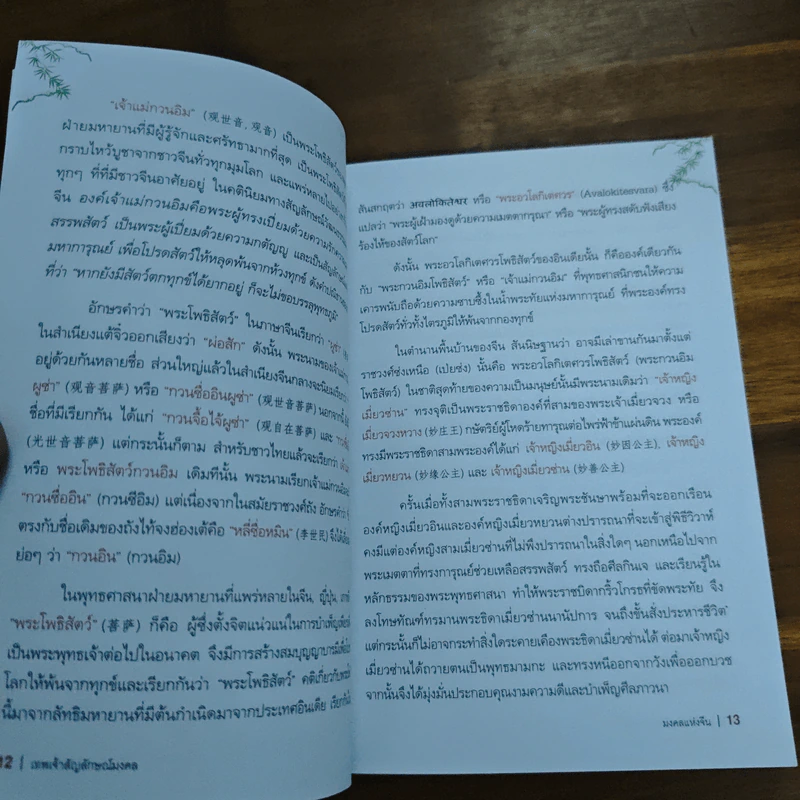 "เจ้าแม่กวนอิม" (观世音, 观音) เป็นพระโพธิสัตว์
ฝ่ายมหายานที่มีผู้รู้จักและศรัทธามากที่สุด เป็นพระโพธิสัตว์
กราบไหว้บูชาจากชาวจีนทั่วทุกมุมโลก และแพร่หลายไป
ทุกๆ ที่ที่มีชาวจีนอาศัยอยู่ ในคตินิยมทางสัญลักษณ์
จีน องค์เจ้าแม่กวนอิมคือพระผู้ทรงเปี่ยมด้วยความ
สรรพสัตว์ เป็นพระผู้เปี่ยมด้วยความกตัญญู และเป็น
มหาการุณย์ เพื่อโปรดสัตว์ให้หลุดพ้นจากห้วงทุกข์
ที่ว่า "หากยังมีสัตว์ตกทุกข์ได้ยากอยู่ ก็จะไม่ขอบรรลุพุทธภูมิ"
อักษรคำว่า "พระโพธิสัตว์" ในภาษาจีนเรียกว่า "ผูซ่า"
ในสำเนียงแต้จิ๋วออกเสียงว่า "ผ่อสัก" ดังนั้น พระนามของ
อยู่ด้วยกันหลายชื่อ ส่วนใหญ่แล้วในสำเนียงจีนกลางจะนิยมเรียก
ผูซ่า" (观音菩萨) หรือ "กวนซื่ออินผูซ่า" (观世音菩萨) นอกจากนี้
ชื่อที่มีเรียกกัน ได้แก่ "กวนจื้อไจ้ผูซ่า" (观自在菩萨) และ
(光世音菩萨) แต่กระนั้นก็ตาม สำหรับชาวไทยแล้วจะเรียกว่า
หรือ พระโพธิสัตว์กวนอิม เดิมทีนั้น พระนามเรียกเจ้าแม่กวนอิม
"กวนซื่ออิน" (กวนซีอิม) แต่เนื่องจากในสมัยราชวงศ์ถัง อักษรคำว่า
ตรงกับชื่อเดิมของถังไท้จงฮ่องเต้คือ "หลี่ซื่อหมิน" (李世民) จึง
ย่อๆ ว่า "กวนอิน" (กวนอิม)
ในพุทธศาสนาฝ่ายมหายานที่แพร่หลายในจีน, ญี่ปุ่น,
"พระโพธิสัตว์" (菩萨) ก็คือ ผู้ซึ่งตั้งจิตแน่วแน่ในการบำเพ็ญ
เป็นพระพุทธเจ้าต่อไปในอนาคต จึงมีการสร้างสมบุญญาบารมี
โลกให้พ้นจากทุกข์และเรียกกันว่า "พระโพธิสัตว์" คติเกี่ยวกับ
นี้มาจากลัทธิมหายานที่มีต้นกำเนิดมาจากประเทศอินเดีย
12 | เทพเจ้าสัญลักษณ์มงคล
สันสกฤตว่า अवलोकितेश्वर หรือ "พระอวโลกิเตศวร" (Avalokitesvara) ซึ่ง
แปลว่า "พระผู้เฝ้ามองดูด้วยความเมตตากรุณา" หรือ "พระผู้ทรงสดับฟังเสียง
ร้องไห้ของสัตว์โลก"
ดังนั้น พระอวโลกิเตศวรโพธิสัตว์ของอินเดียนั้น ก็คือองค์เดียวกัน
กับ "พระกวนอิมโพธิสัตว์" หรือ "เจ้าแม่กวนอิม" ที่พุทธศาสนิกชนให้ความ
เคารพนับถือด้วยความซาบซึ้งในน้ำพระทัยแห่งมหาการุณย์ ที่พระองค์ทรง
โปรดสัตว์ทั่วทั้งไตรภูมิให้พ้นจากกองทุกข์
ในตำนานพื้นบ้านของจีน สันนิษฐานว่า อาจมีเล่าขานกันมาตั้งแต่
ราชวงศ์ซ่งเหนือ (เปยซ่ง) นั้นคือ พระอวโลกิเตศวรโพธิสัตว์ (พระกวนอิม
โพธิสัตว์) ในชาติสุดท้ายของความเป็นมนุษย์นั้นมีพระนามเดิมว่า "เจ้าหญิง
เมี่ยวซ่าน" ทรงจุติเป็นพระราชธิดาองค์ที่สามของพระเจ้าเมี่ยวจวง หรือ
เมี่ยวจวงหวาง (妙庄王) กษัตริย์ผู้โหดร้ายทารุณต่อไพร่ฟ้าข้าแผ่นดิน พระองค์
ทรงมีพระราชธิดาสามพระองค์ได้แก่ เจ้าหญิงเมี่ยวอิน (妙因公主), เจ้าหญิง
เมี่ยวหยวน (妙缘公主) และ เจ้าหญิงเมี่ยวซ่าน (妙善公主)
ครั้นเมื่อทั้งสามพระราชธิดาเจริญพระชันษาพร้อมที่จะออกเรือน
องค์หญิงเมี่ยวอินและองค์หญิงเมี่ยวหยวนต่างปรารถนาที่จะเข้าสู่พิธีวิวาห์
คงมีแต่องค์หญิงสามเมี่ยวซ่านที่ไม่พึงปรารถนาในสิ่งใดๆ นอกเหนือไปจาก
พระเมตตาที่ทรงการุณย์ช่วยเหลือสรรพสัตว์ ทรงถือศีลกินเจ และเรียนรู้ใน
หลักธรรมของพระพุทธศาสนา ทำให้พระราชบิดากริ้วโกรธที่ขัดพระทัย จึง
ลงโทษทัณฑ์ทรมานพระธิดาเมี่ยวซ่านนานัปการ จนถึงขั้นสั่งประหารชีวิต
แต่กระนั้นก็ไม่อาจกระทำสิ่งใดระคายเคืองพระธิดาเมี่ยวซ่านได้ ต่อมาเจ้าหญิง
เมี่ยวซ่านได้ถวายตนเป็นพุทธมามกะ และทรงหนีออกจากวังเพื่อออกบวช
จากนั้นจึงได้มุ่งมั่นประกอบคุณงามความดีและบำเพ็ญศีลภาวนา
มงคลแห่งจีน | 13